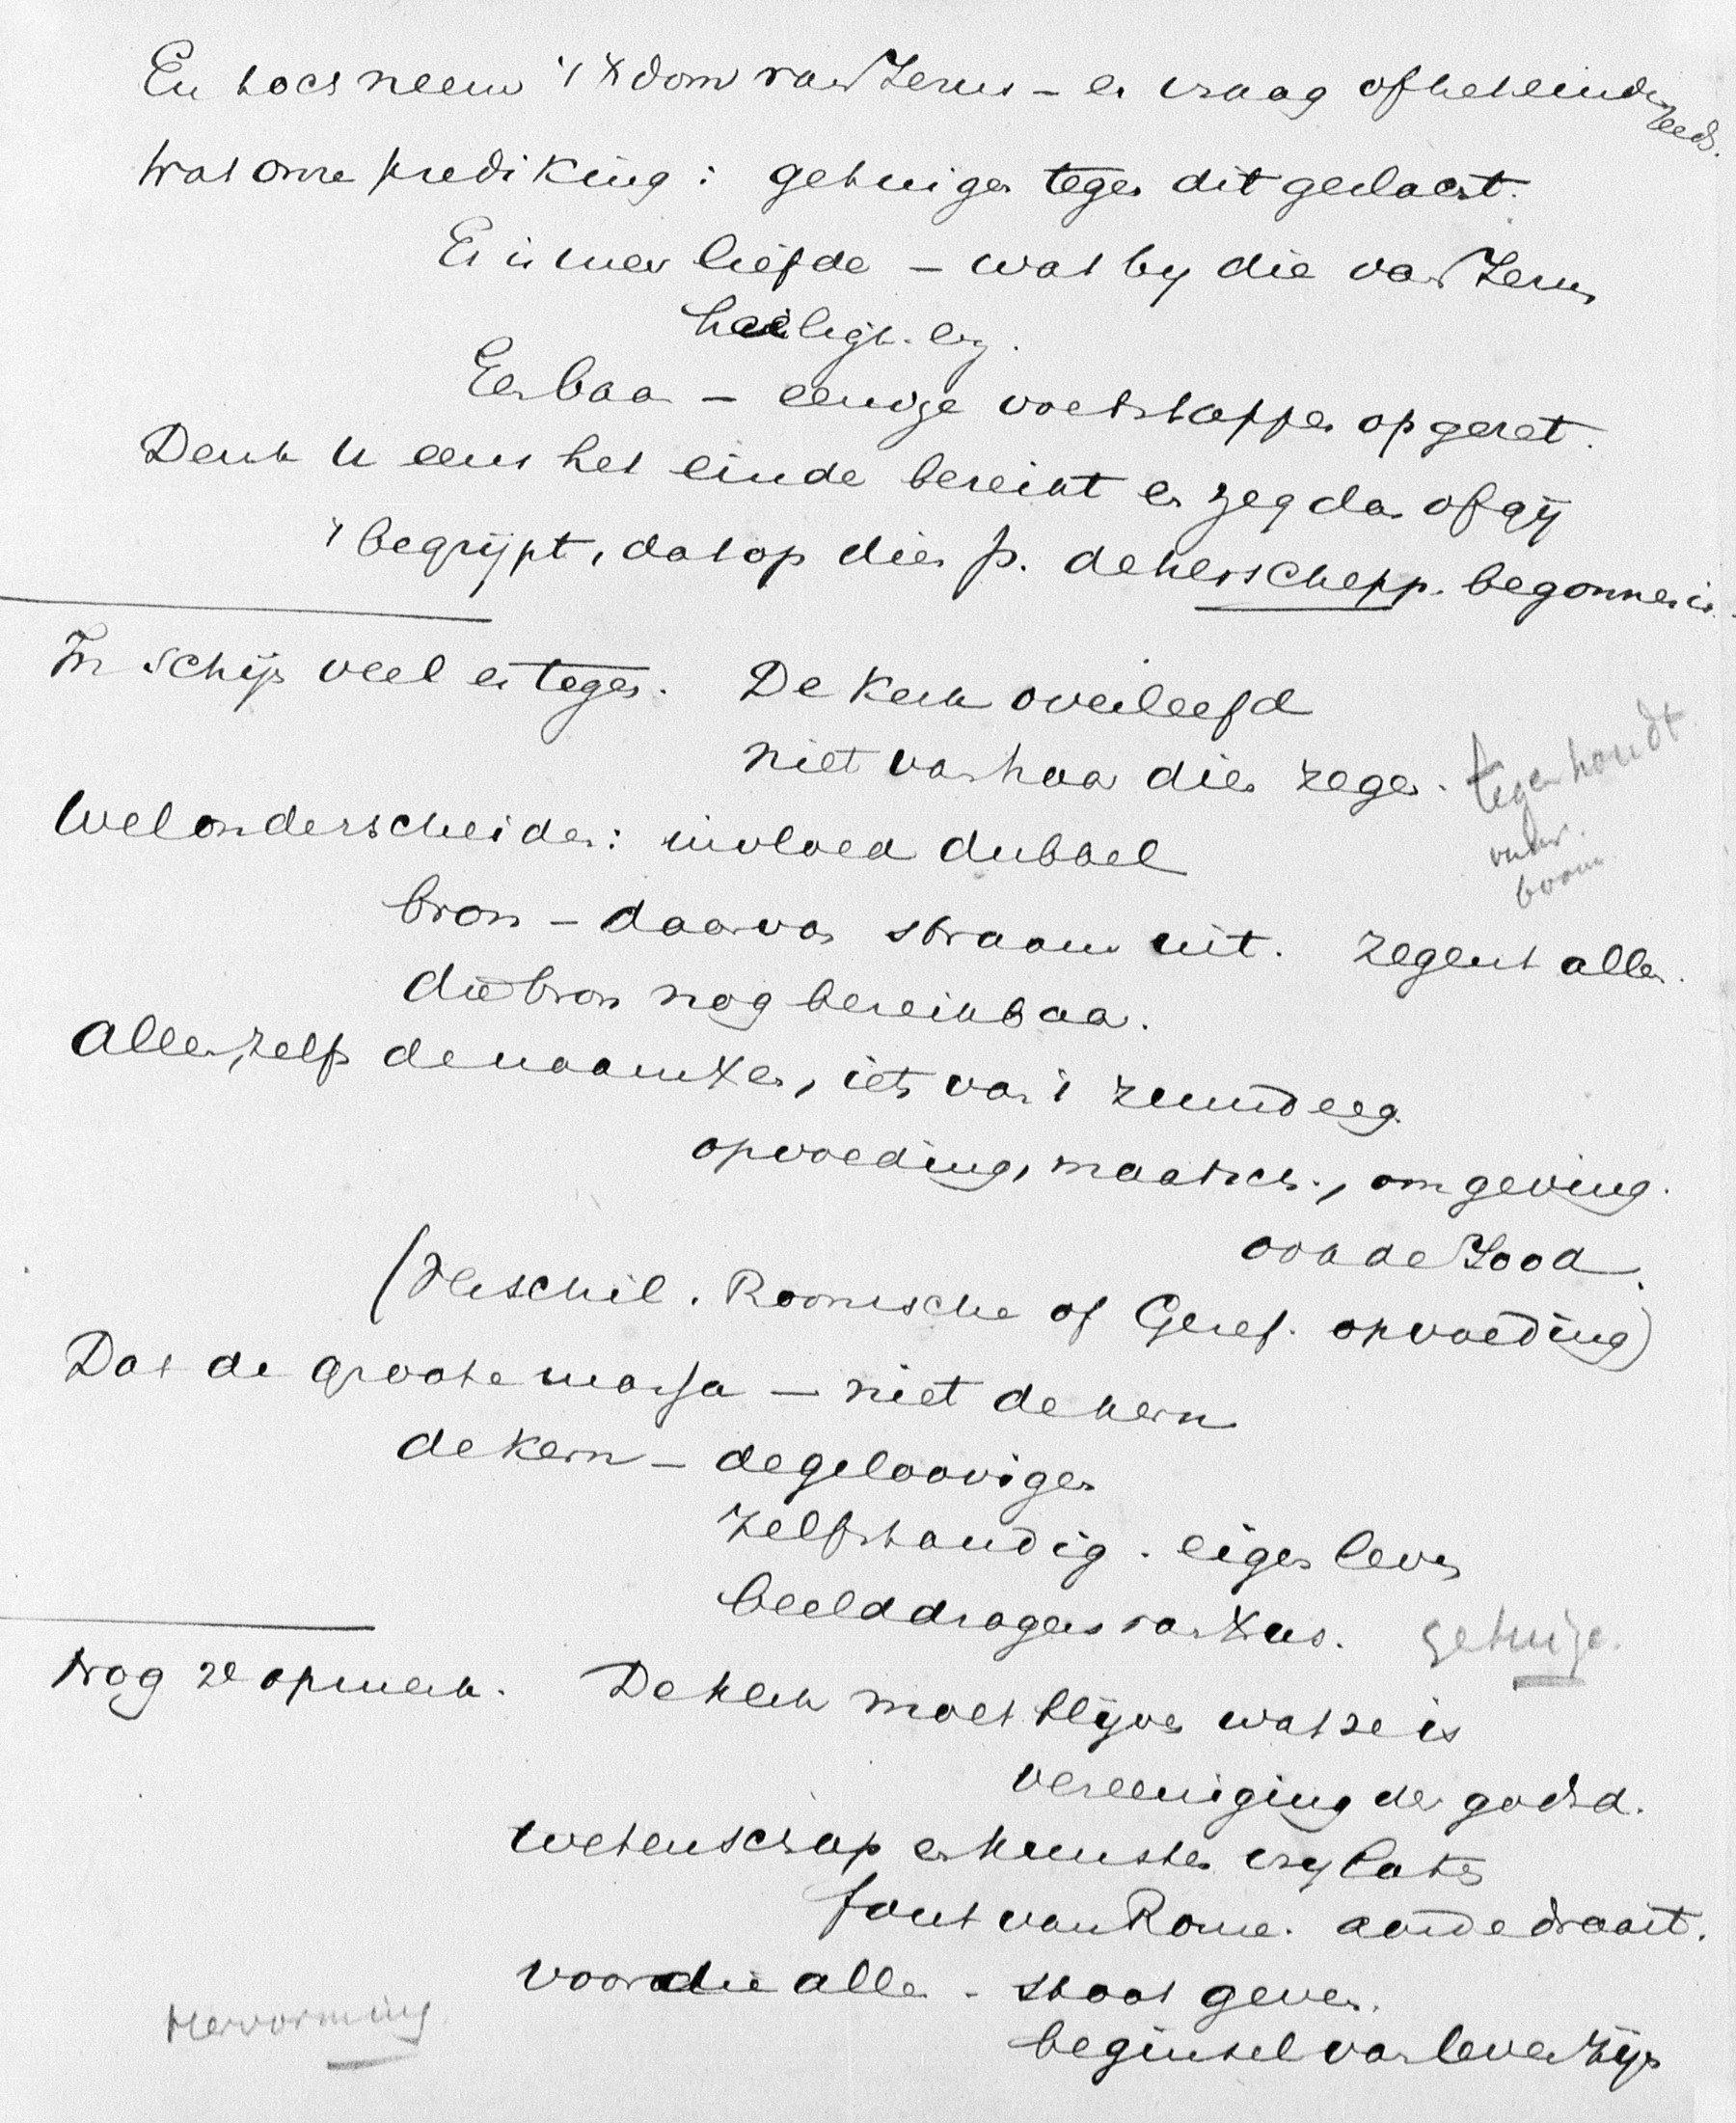 En toch neem 't Xdom van Jezus - en vraag of het einde reeds.
Wat onze prediking: getuigen tegen dit geslacht.
Er is meer liefde - wat by die van Jezus
heiligh. en
Een baan - eenige voetstappen opgezet.
Denk U eens het einde bereikt en zeg dan of gij
't begrijpt, dat op dien p. de herschepp. begonnen is.
In schijn veel er tegen. De Kerk overleefd
niet van haar dien zegen. tegenhoudt
vuur
boom
Wel onderscheiden: invloed dubbel
bron - daarvan stroom uit. zegent allen.
die bron nog bereikbaar.
Allen, zelfs de naamXen, iets van 't zuurdeeg.
opvoeding, maatsch., omgeving.
ook de Jood.
(Verschil. Roomsche of Geref. opvoeding)
Dat de groote massa - niet de kern
de Kern - de geloovigen
Zelfstandig. eigen leven
beelddragers van Xus. getuige.
Nog 2e opmerk. De Kerk moet blijven wat ze is
vereeniging der godsd.
wetenschap en kunsten vrylaten
fout van Rome. aarde draait.
voor die allen - stoot geven.
beginsel van leven zijn
Hervorming